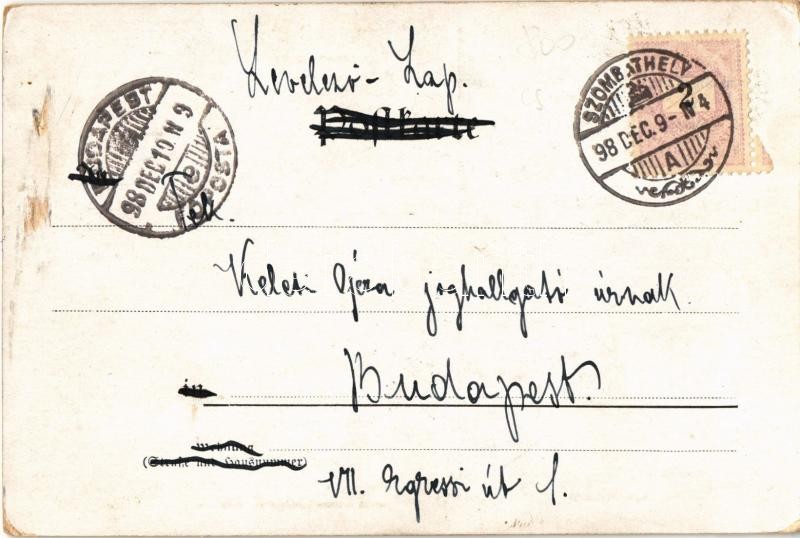 Levelező-Lap.
Postkarte
BUDAPEST
98 DEC. 10. N 9
POSTA
SZOMBATHELY
98 DEC. 9- N 4
A
2
Tek.
Keleti Géza joghallgató úrnak
in
Budapest.
Wohnung
(Straße und Hausnummer)
VII. Egressi út 1.